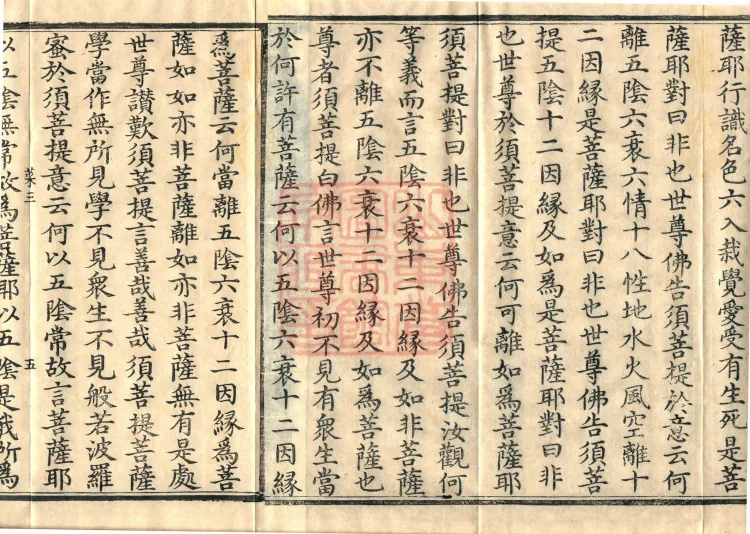 薩耶行識名色六入栽覺愛受有生死是菩
薩耶對曰非也世尊佛告須菩提於意云何
離五陰六衰六情十八性地水火風空離十
二因緣是菩薩耶對曰非也世尊佛告須菩
提五陰十二因緣及如為是菩薩耶對曰非
也世尊於須菩提意云何可離如為菩薩耶
須菩提對曰非也世尊佛告須菩提汝觀何
等義而言五陰六衰十二因緣及如非菩薩
亦不離五陰六衰十二因緣及如為菩薩也
尊者須菩提白佛言世尊初不見有衆生當
於何許有菩薩云何以五陰六衰十二因緣
為菩薩云何當離五陰六衰十二因緣為菩
薩如如亦非菩薩離如亦非菩薩無有是處
世尊讃歎須菩提言善哉善哉須菩提菩薩
學當作無所見學不見衆生不見般若波羅
蜜於須菩提意云何以五陰常故言菩薩耶
菜三 五
以五陰無常故為菩薩耶以五陰是我所為